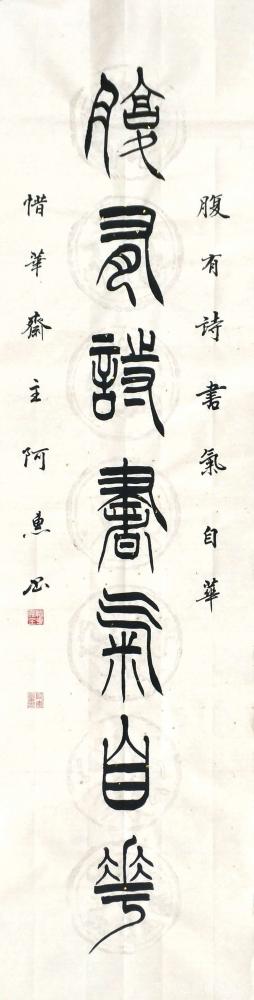 腹有詩書氣自華
腹有詩書氣自華
惜華齋主阿惠書